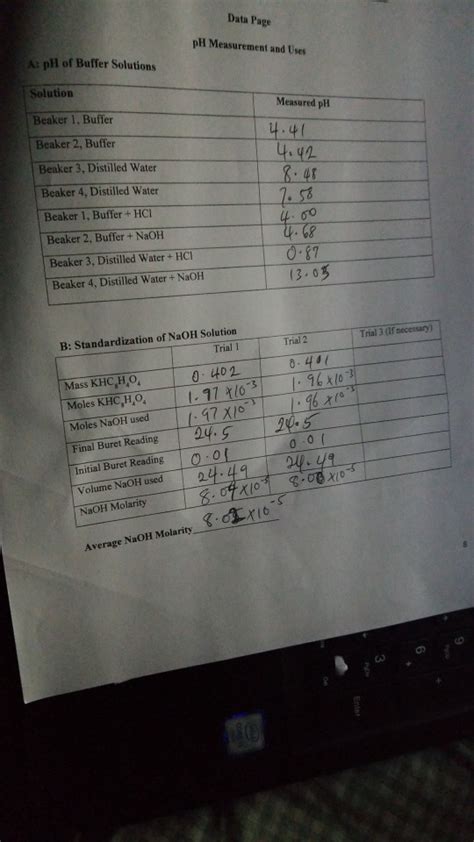 Data Page
pH Measurement and Uses
A: pH of Buffer Solutions
Solution Measured pH
Beaker 1, Buffer 4.41
Beaker 2, Buffer 4.42
Beaker 3, Distilled Water 8.48
Beaker 4, Distilled Water 7.58
Beaker 1, Buffer + HCl 4.00
Beaker 2, Buffer + NaOH 4.68
Beaker 3, Distilled Water + HCl 0.87
Beaker 4, Distilled Water + NaOH 13.05
B: Standardization of NaOH Solution
Trial 1 Trial 2 Trial 3 (If necessary)
Mass KHC₈H₄O₄ 0.402 0.401
Moles KHC₈H₄O₄ 1.97 x10⁻³ 1.96 x10⁻³
Moles NaOH used 1.97 x10⁻³ 1.96 x10⁻³
Final Buret Reading 24.5 24.5
Initial Buret Reading 0.01 0.01
Volume NaOH used 24.49 24.49
NaOH Molarity x10⁻⁵ x10⁻⁵
Average NaOH Molarity x10⁻⁵
8
9
6
3
+
Enter